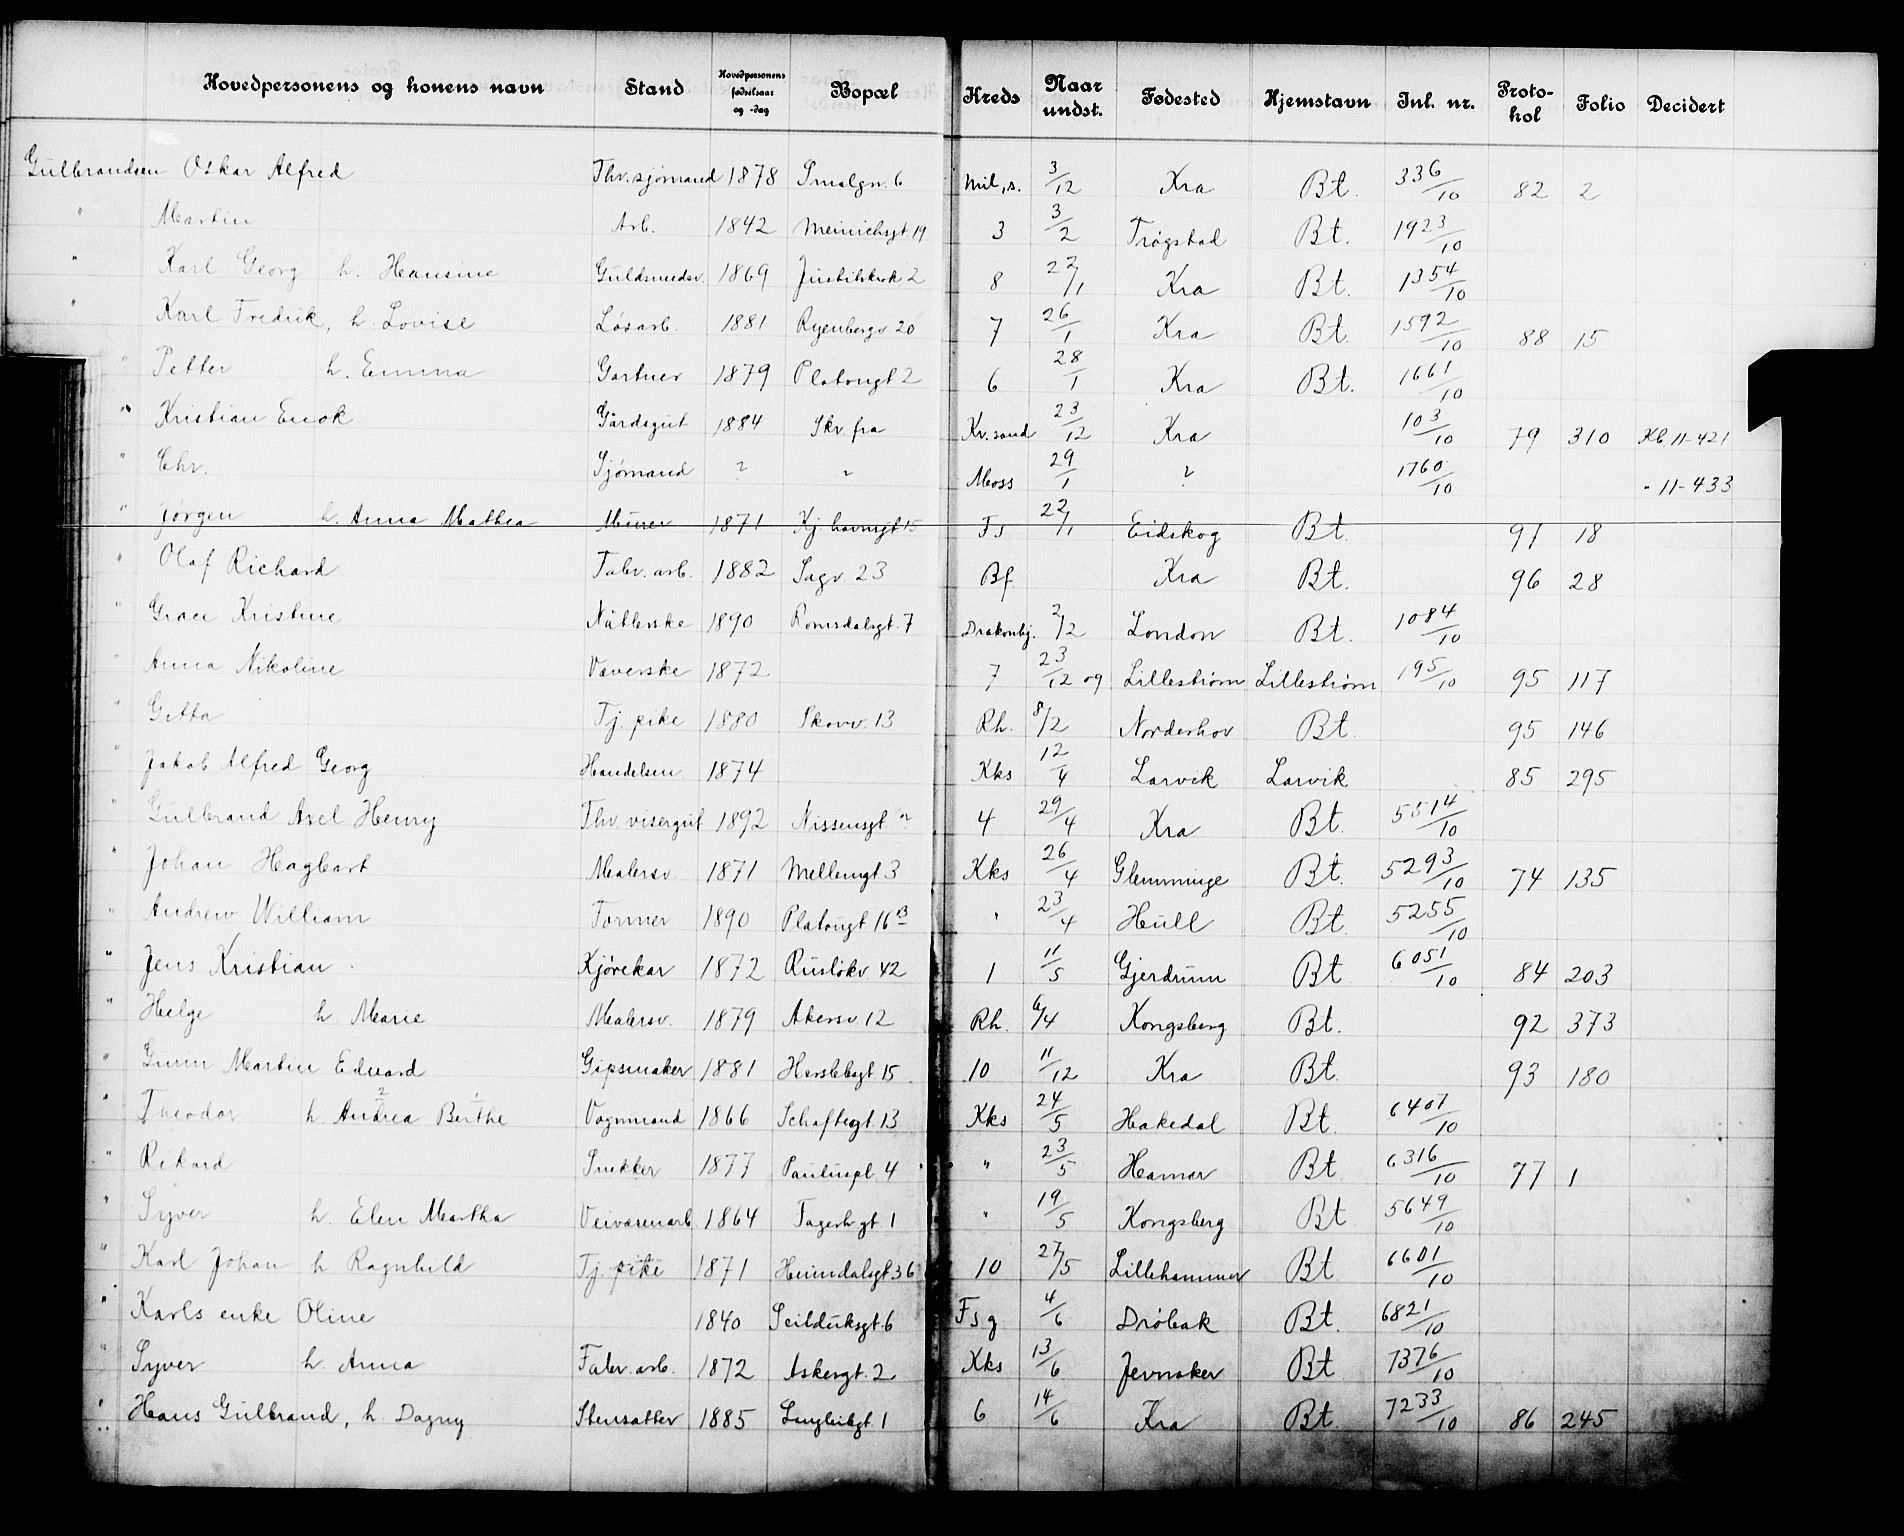 Hovedpersonens og konens navn Stand Hovedpersonens fødselsaar og -dag Bopæl Kreds Naar undst. Fødested Hjemstavn Inl. nr. Protokol Folio Decidert
Gulbrandsen Oskar Alfred Fhv. sjømand 1878 Smalgn. 6 Mil, s. 3/12 Kra Bt. 336/10 82 2
" Martin Arb. 1842 Meinichsgt. 19 3 3/2 Trøgstad Bt. 1923/10
" Karl Georg h. Hansine Guldsmedsv. 1869 8 22/1 Kra Bt. 1354/10
" Karl Fredrik, h. Lovise Løsarb. 1881 Ryenbergv. 20 7 26/1 Kra Bt. 1592/10 88 15
" Petter h. Emma Gartner 1879 Platougt 2 6 28/1 Kra Bt. 1661/10
" Kristian Enok Gårdsgut 1884 Skr. fra Kr. sand 23/12 Kra 103/10 79 310 Kb 11-421
" Chr. Sjømand ? " Moss 29/1 ? 1760/10 " 11-433
" Jørgen h. Anna Mathea Murer 1871 Kj. havnsgt 15 Fs 22/1 Eidskog Bt. 97 18
" Olaf Richard Fabr. arb. 1882 Sagv 23 Bf. Kra Bt. 96 28
" Grace Kristine Nåtlerske 1890 Romsdalsgt. 7 2/12 London Bt. 1084/10
" Anna Nikoline Væverske 1872 7 23/12 09 Lillestrøm Lillestrøm 195/10 95 117
" Gitta Tj. pike 1880 Skovv. 13 Rh. 8/2 Norderhov Bt. 95 146
" Jakob Alfred Georg Handelsm. 1874 Kks 12/4 Larvik Larvik 85 295
" Gulbrand Axel Henry Fhv. visergut 1892 Nissensgt 4 29/4 Kra Bt. 5514/10
" Johan Hagbart Malersv. 1871 Mellemgt 3 Kks 26/4 Glemminge Bt. 5293/10 74 135
" Andrew William Former 1890 Platougt 16 B " 23/4 Hull Bt. 5255/10
" Jens Kristian Kjørekar 1872 Ruslökv 42 1 11/5 Gjerdrum Bt 6051/10 84 203
" Helge h. Marie Malersv. 1879 Akersv 12 Rh. 6/4 Kongsberg Bt. 92 373
" Gunn Martin Edvard Gipsmaker 1881 Herslebsgt 15 10 11/12 Kra Bt. 93 180
" Theodor h. Andrea Berthe Vognmand 1866 Schaftegt. 13 Kks 24/5 Hakedal Bt. 6407/10
" Rikard Snekker 1877 Pauluspl. 4 " 23/5 Hamar Bt 6316/10 77 1
" Syver h. Elen Martha Veivæsenarb. 1864 Fagerh. gt 1 " 19/5 Kongsberg Bt 5649/10
" Karl Johan h Ragnhild Tj. pike 1871 Heimdalsgt 36 10 27/5 Lillehammer Bt 6601/10
" Karls enke Oline 1840 Seilduksgt. 6 Fsg 4/6 Drøbak Bt. 6821/10
" Syver h. Anna Fabr. arb. 1872 Askergt. 2 Kks 13/6 Jevnaker Bt 7376/10
" Hans Gulbrand, h. Dagny Stensætter 1885 Langleikgt. 1 6 14/6 Kra Bt 7233/10 86 245